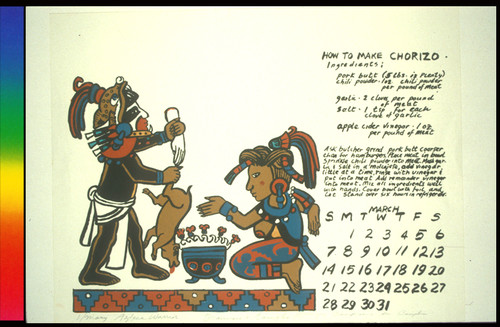 HOW TO MAKE CHORIZO.
Ingredients;
pork butt (5 lbs. is plenty)
chili powder · 1oz chili powder
per pound of meat
garlic · 2 cloves per pound
of meat
salt · 1 tsp for each
clove of garlic
apple cider vinegar · 1 oz
per pound of meat
Ask butcher grind pork butt coarser
than for hamburger. Place meat in bowl
Sprinkle chili powder into meat. Mash gar-
lic & salt in a molcajete, add vinegar
little at a time, rinse with vinegar &
put into meat Add remainder vinegar
into meat. Mix all ingredients well
with hands. Cover bowl with foil, and
let stand over six hours in refrigerator
MARCH
S M T W T F S
1 2 3 4 5 6
7 8 9 10 11 12 13
14 15 16 17 18 19 20
21 22 23 24 25 26 27
28 29 30 31